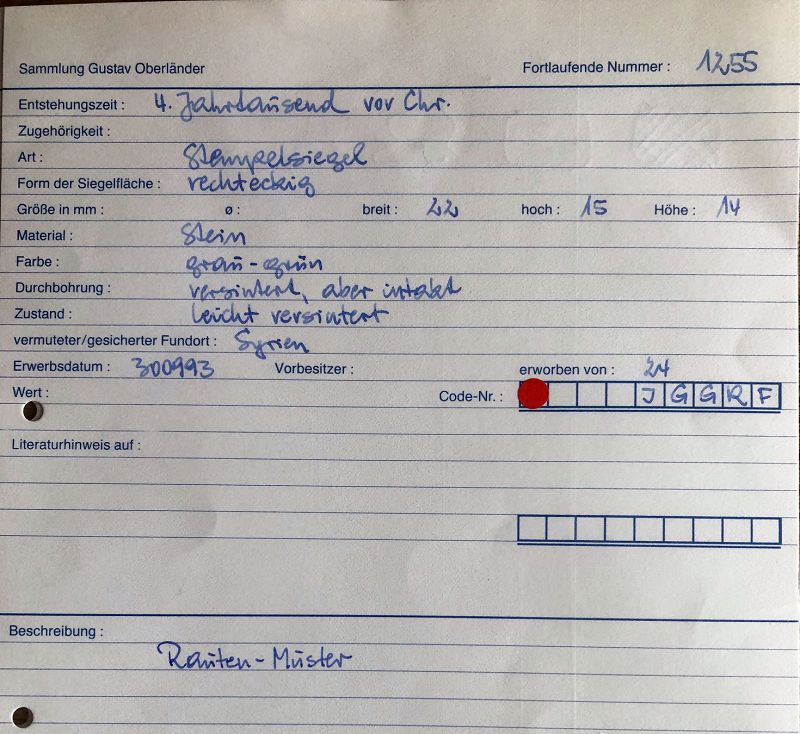 Sammlung Gustav Oberländer Fortlaufende Nummer : 1255
Entstehungszeit : 4. Jahrtausend vor Chr.
Zugehörigkeit :
Art : Stempelsiegel
Form der Siegelfläche : rechteckig
Größe in mm : ø : breit : 22 hoch : 15 Höhe : 14
Material : Stein
Farbe : grau-grün
Durchbohrung : versintert, aber intakt
Zustand : leicht versintert
vermuteter/gesicherter Fundort : Syrien
Erwerbsdatum : 300993 Vorbesitzer : erworben von : 24
Wert : Code-Nr. : J G G R F
Literaturhinweis auf :
Beschreibung :
Rauten-Muster